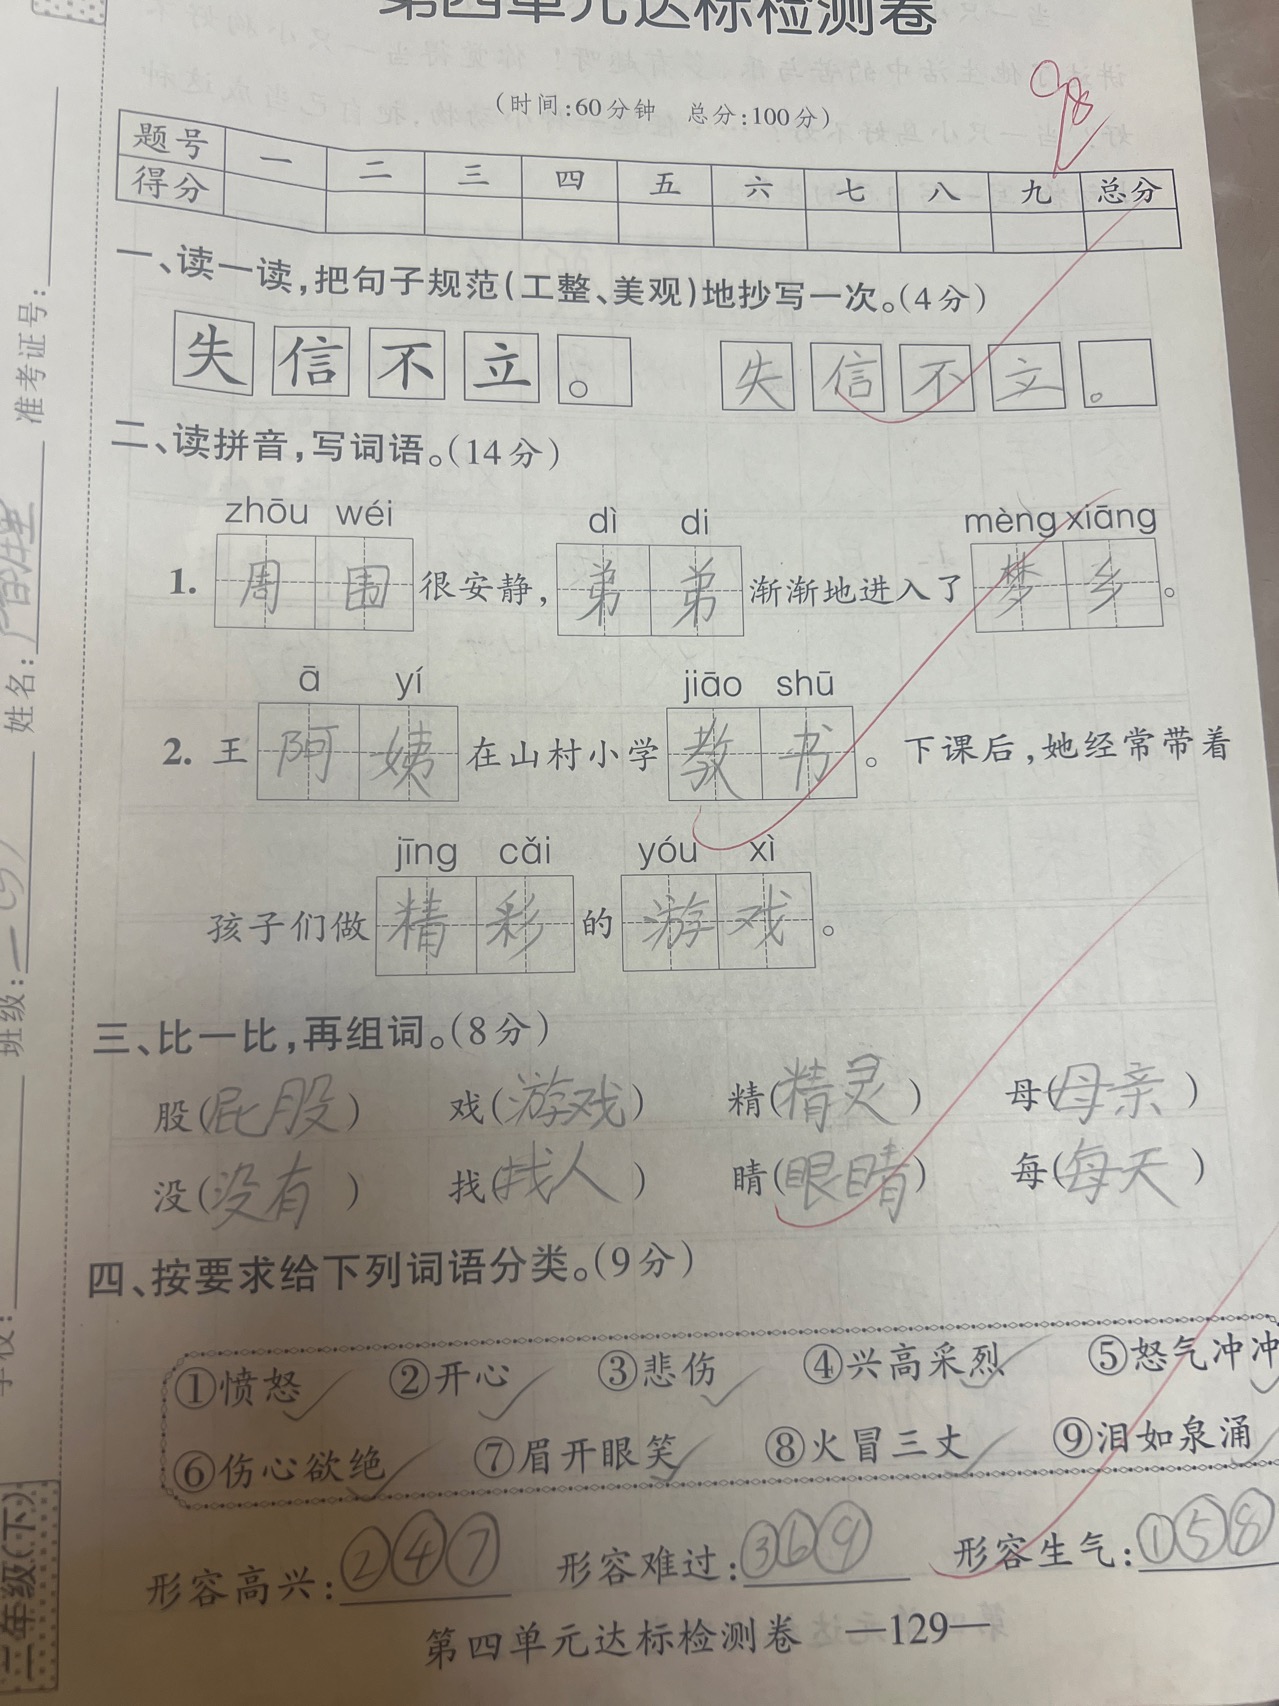 第四单元达标检测卷
98
(时间:60分钟 总分:100分)
题号 一 二 三 四 五 六 七 八 九 总分
得分
一、读一读,把句子规范(工整、美观)地抄写一次。(4分)
失信不立。 失信不立。
二、读拼音,写词语。(14分)
zhōu wéi dì di mèng xiāng
1. 周围很安静,弟弟渐渐地进入了梦乡。
ā yí jiāo shū
2. 王阿姨在山村小学教书。下课后,她经常带着
jīng cǎi yóu xì
孩子们做精彩的游戏。
三、比一比,再组词。(8分)
股(屁股) 戏(游戏) 精(精灵) 母(母亲)
没(没有) 找(找人) 睛(眼睛) 每(每天)
四、按要求给下列词语分类。(9分)
①愤怒 ②开心 ③悲伤 ④兴高采烈 ⑤怒气冲冲
⑥伤心欲绝 ⑦眉开眼笑 ⑧火冒三丈 ⑨泪如泉涌
形容高兴:②④⑦ 形容难过:③⑥⑨ 形容生气:①⑤⑧
第四单元达标检测卷 —129—
准考证号:
姓名:
班级:
二年级(下)